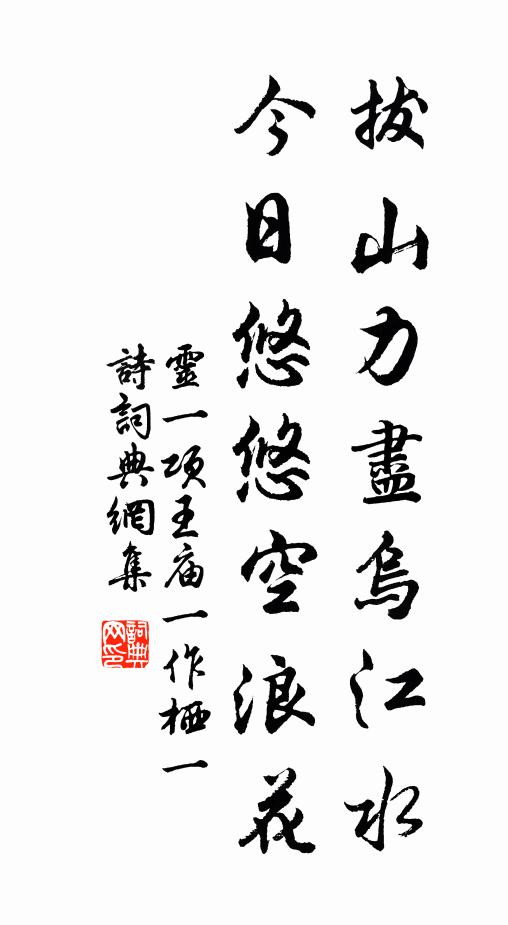 拔山力盡烏江水
今日悠悠空浪花
靈一項王庙一作栖一
詩詞典網集
詞典网印